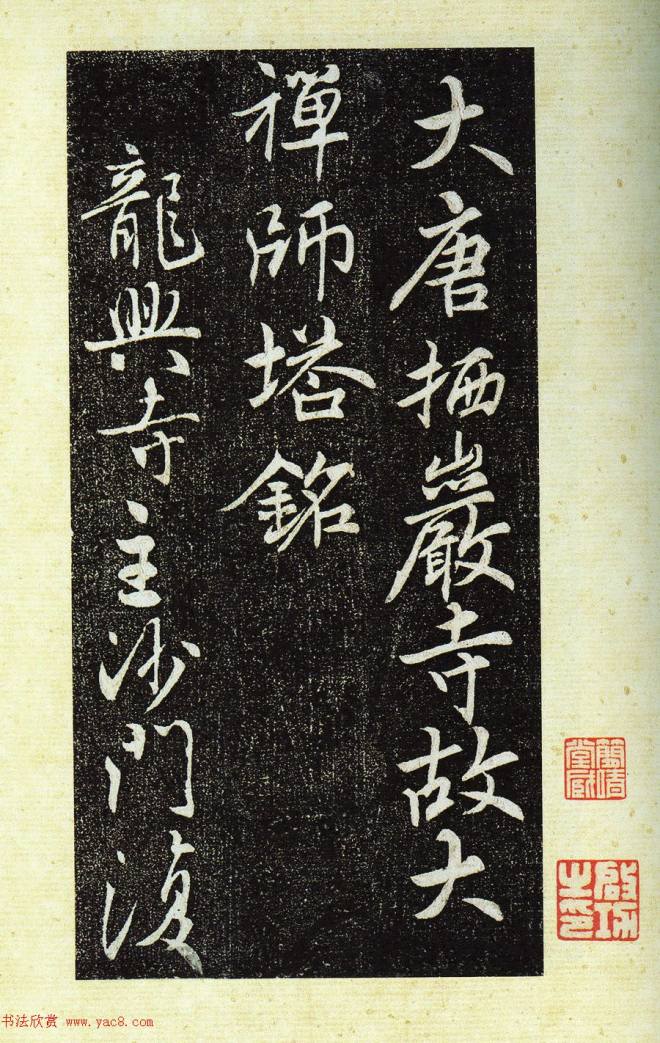 大唐栖巖寺故大
禪師塔銘
龍興寺主沙門復
啟功之印
书法欣赏 www.yac8.com